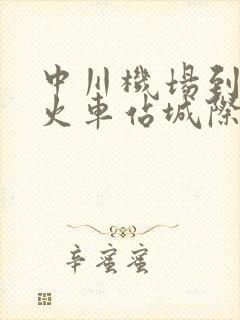 中川機場到
火車佔城際
辛蜜蜜